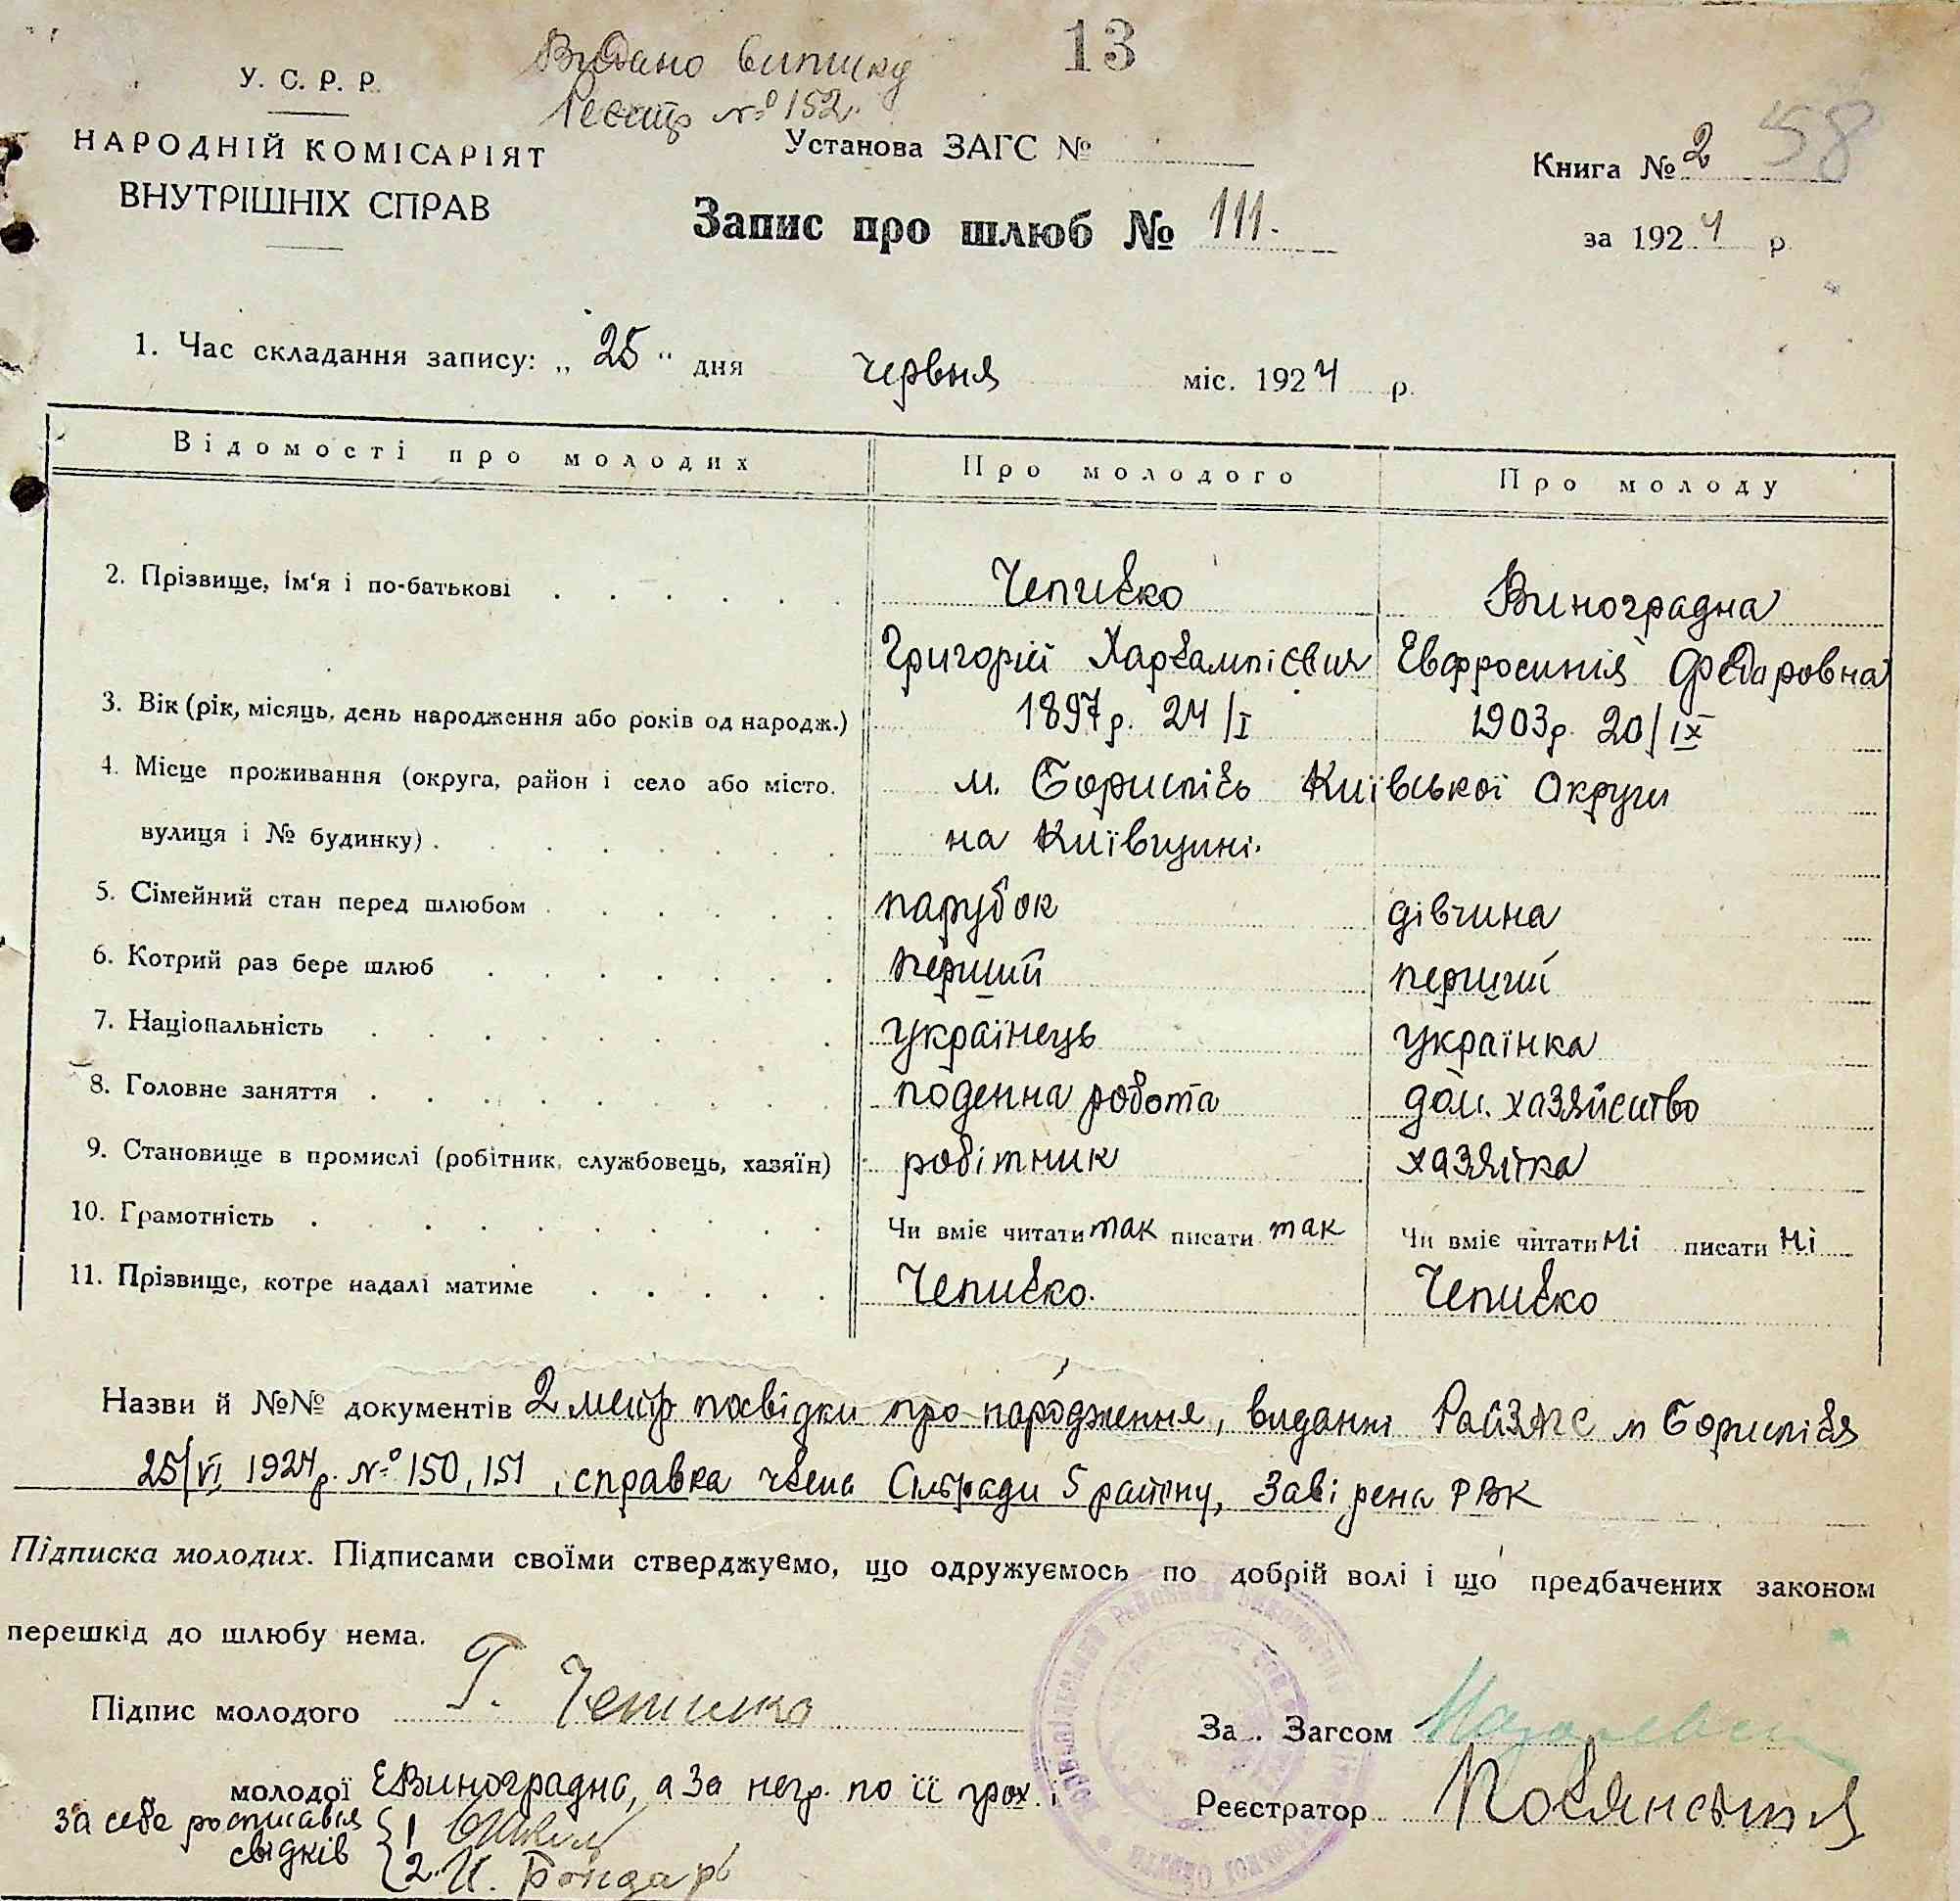 13
Видано виписку
Реєстр № 152
У. С. Р. Р.
НАРОДНІЙ КОМІСАРІЯТ
ВНУТРІШНІХ СПРАВ
Установа ЗАГС №
Книга № 2 58
Запис про шлюб № 111.
за 1924 р.
1. Час складання запису: „ 25 " дня червня міс. 1924 р.
Відомості про молодих Про молодого Про молоду
2. Прізвище, ім'я і по-батькові Чепилко Виноградна
Григорій Харлампієвич Евфросинія Федаровна
3. Вік (рік, місяць, день народження або років од народж.) 1897 р. 24/I 1903 р. 20/IX
4. Місце проживання (округа, район і село або місто, м. Бориспіль Київської Округи
вулиця і № будинку) на Київщині.
5. Сімейний стан перед шлюбом парубок дівчина
6. Котрий раз бере шлюб перший перший
7. Національність українець українка
8. Головне заняття поденна робота дом. хазяйство
9. Становище в промислі (робітник, службовець, хазяїн) робітник хазяйка
10. Грамотність Чи вміє читати так писати так Чи вміє читати ні писати ні
11. Прізвище, котре надалі матиме Чепилко. Чепилко
Назви й №№ документів 2 метр посвідки про народження, виданні РайЗАГС м Бориспіля
25/VI 1924 р. № 150, 151, справка члена Сільради 5 району, Завірена РВК
Підписка молодих. Підписами своїми стверджуємо, що одружуємось по добрій волі і що предбачених законом
перешкід до шлюбу нема.
Підпис молодого Г. Чепилко
За Загсом
молодої ЕВиноградна, а За негр. по її прох.
Реєстратор
За себе росписався
свідків 1
2. И. Бондарь